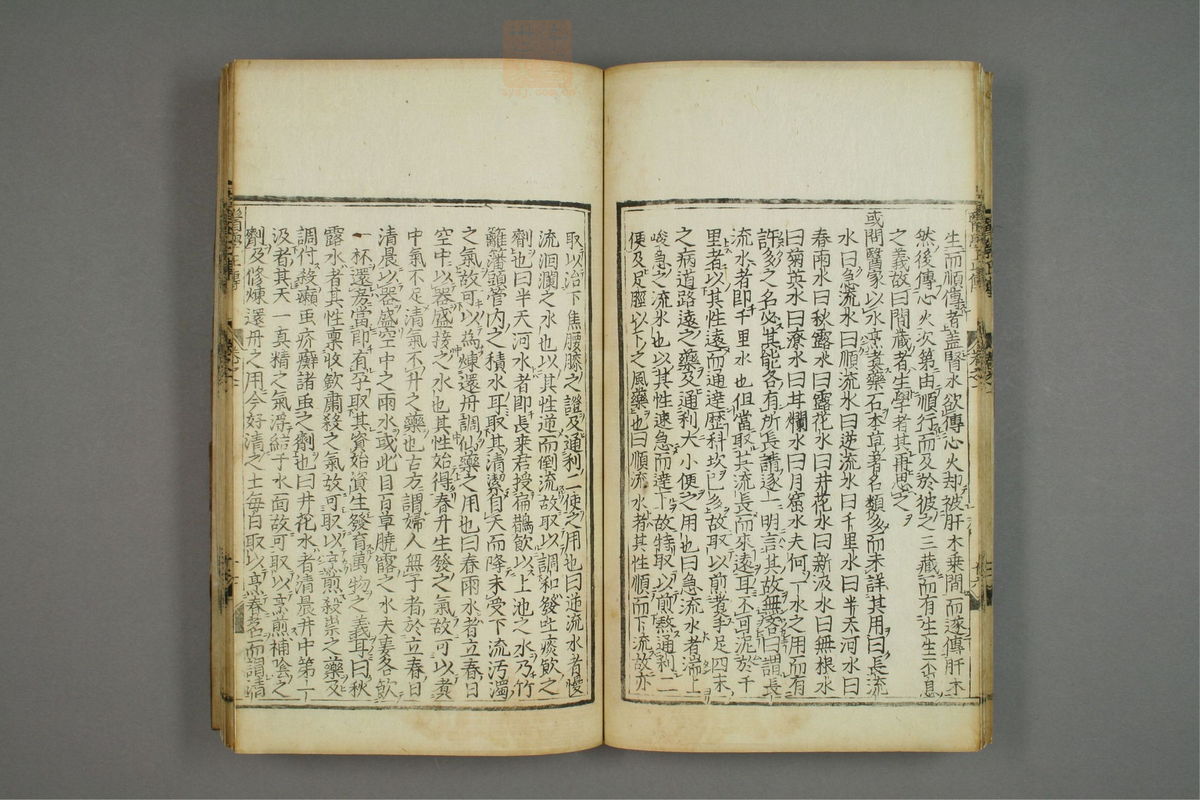 生而順傳者蓋腎水欲傳心火却被肝木乗間而遂傳肝木
然後傳心火次第由順行而及於彼之三藏而有生生不息
之義故曰間藏者生學者其再思之
或問醫家以水烹煮藥石本草著名類多而未詳其用曰長流
水曰急流水曰順流水曰逆流水曰千里水曰半天河水曰
春雨水曰秋露水曰露花水曰井花水曰新汲水曰無根水
曰菊英水曰潦水曰甘爛水曰月窟水夫何一水之用而有
許多之名必其能各有所長請逐一明言其故無吝曰謂長
流水者即千里水也但當取其流長而來遠耳不可泥於千
里者以其性遠而通達歷科坎已多故取以煎煮手足四末
之病道路遠之藥及通利大小便之用也曰急流水者湍上
峻急之流水也以其性速急而達下故特取以煎熬通利二
便及足脛以下之風藥也曰順流水者其性順而下流故亦
取以治下焦腰膝之證及通利二便之用也曰逆流水者慢
流洄瀾之水也以其性逆而倒流故取以調和發吐痰飲之
劑也曰半天河水者即長桒君授扁鵲飲以上池之水乃竹
籬藩頭管内之積水耳取其清潔自天而降未受下流汚濁
之氣故可以為煉還丹調仙藥之用也曰春雨水者立春日
空中以器盛接之水也其性始得春升生發之氣故可以煮
中氣不足清氣不升之藥也古方謂婦人無子者於立春日
清晨以器盛空中之雨水或此日百草曉露之水夫妻各飲
一杯還房當即有孕取其資始資生發育萬物之義耳曰秋
露水者其性禀收斂肅殺之氣故可取以烹煎殺祟之藥及
調付殺癩虫疥癬諸虫之劑也曰井花水者清晨井中第一
汲者其天一真精之氣浮結于水面故可取以烹煎補陰之
劑及修煉還丹之用今好清之士每日取以烹春茗而謂清